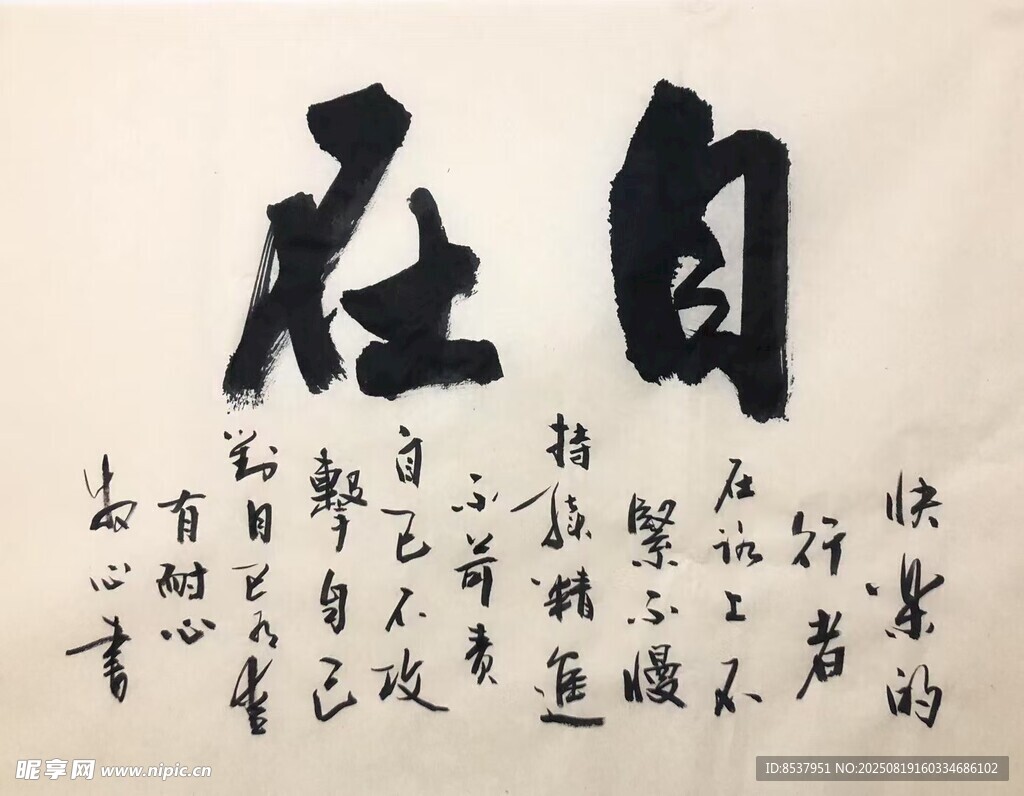 自在
快樂的
行者
在路上不
緊不慢
持續精進
不苛責
自己不攻
擊自己
對自己有
有耐心
心書
昵享网 www.nipic.cn
ID:8537951 NO:20250819160334686102